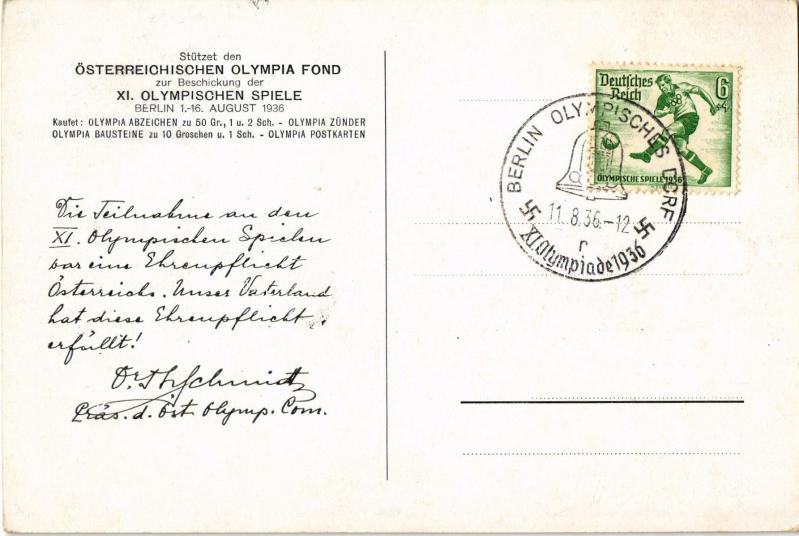 Stützet den
ÖSTERREICHISCHEN OLYMPIA FOND
zur Beschickung der
XI. OLYMPISCHEN SPIELE
BERLIN 1.-16. AUGUST 1936
Kaufet: OLYMPIA ABZEICHEN zu 50 Gr., 1 u. 2 Sch. - OLYMPIA ZÜNDER
OLYMPIA BAUSTEINE zu 10 Groschen u. 1 Sch. - OLYMPIA POSTKARTEN
Die Teilnahme an den
XI. Olympischen Spielen
war eine Ehrenpflicht
Österreichs. Unser Vaterland
hat diese Ehrenpflicht
erfüllt!
Dr. Th Schmidt
Präs. d. Öst. Olymp. Com.
Deutsches
Reich
6
+4
OLYMPISCHE SPIELE 1936
BERLIN OLYMPISCHES DORF
11.8.36.-12
r
XI Olympiade 1936